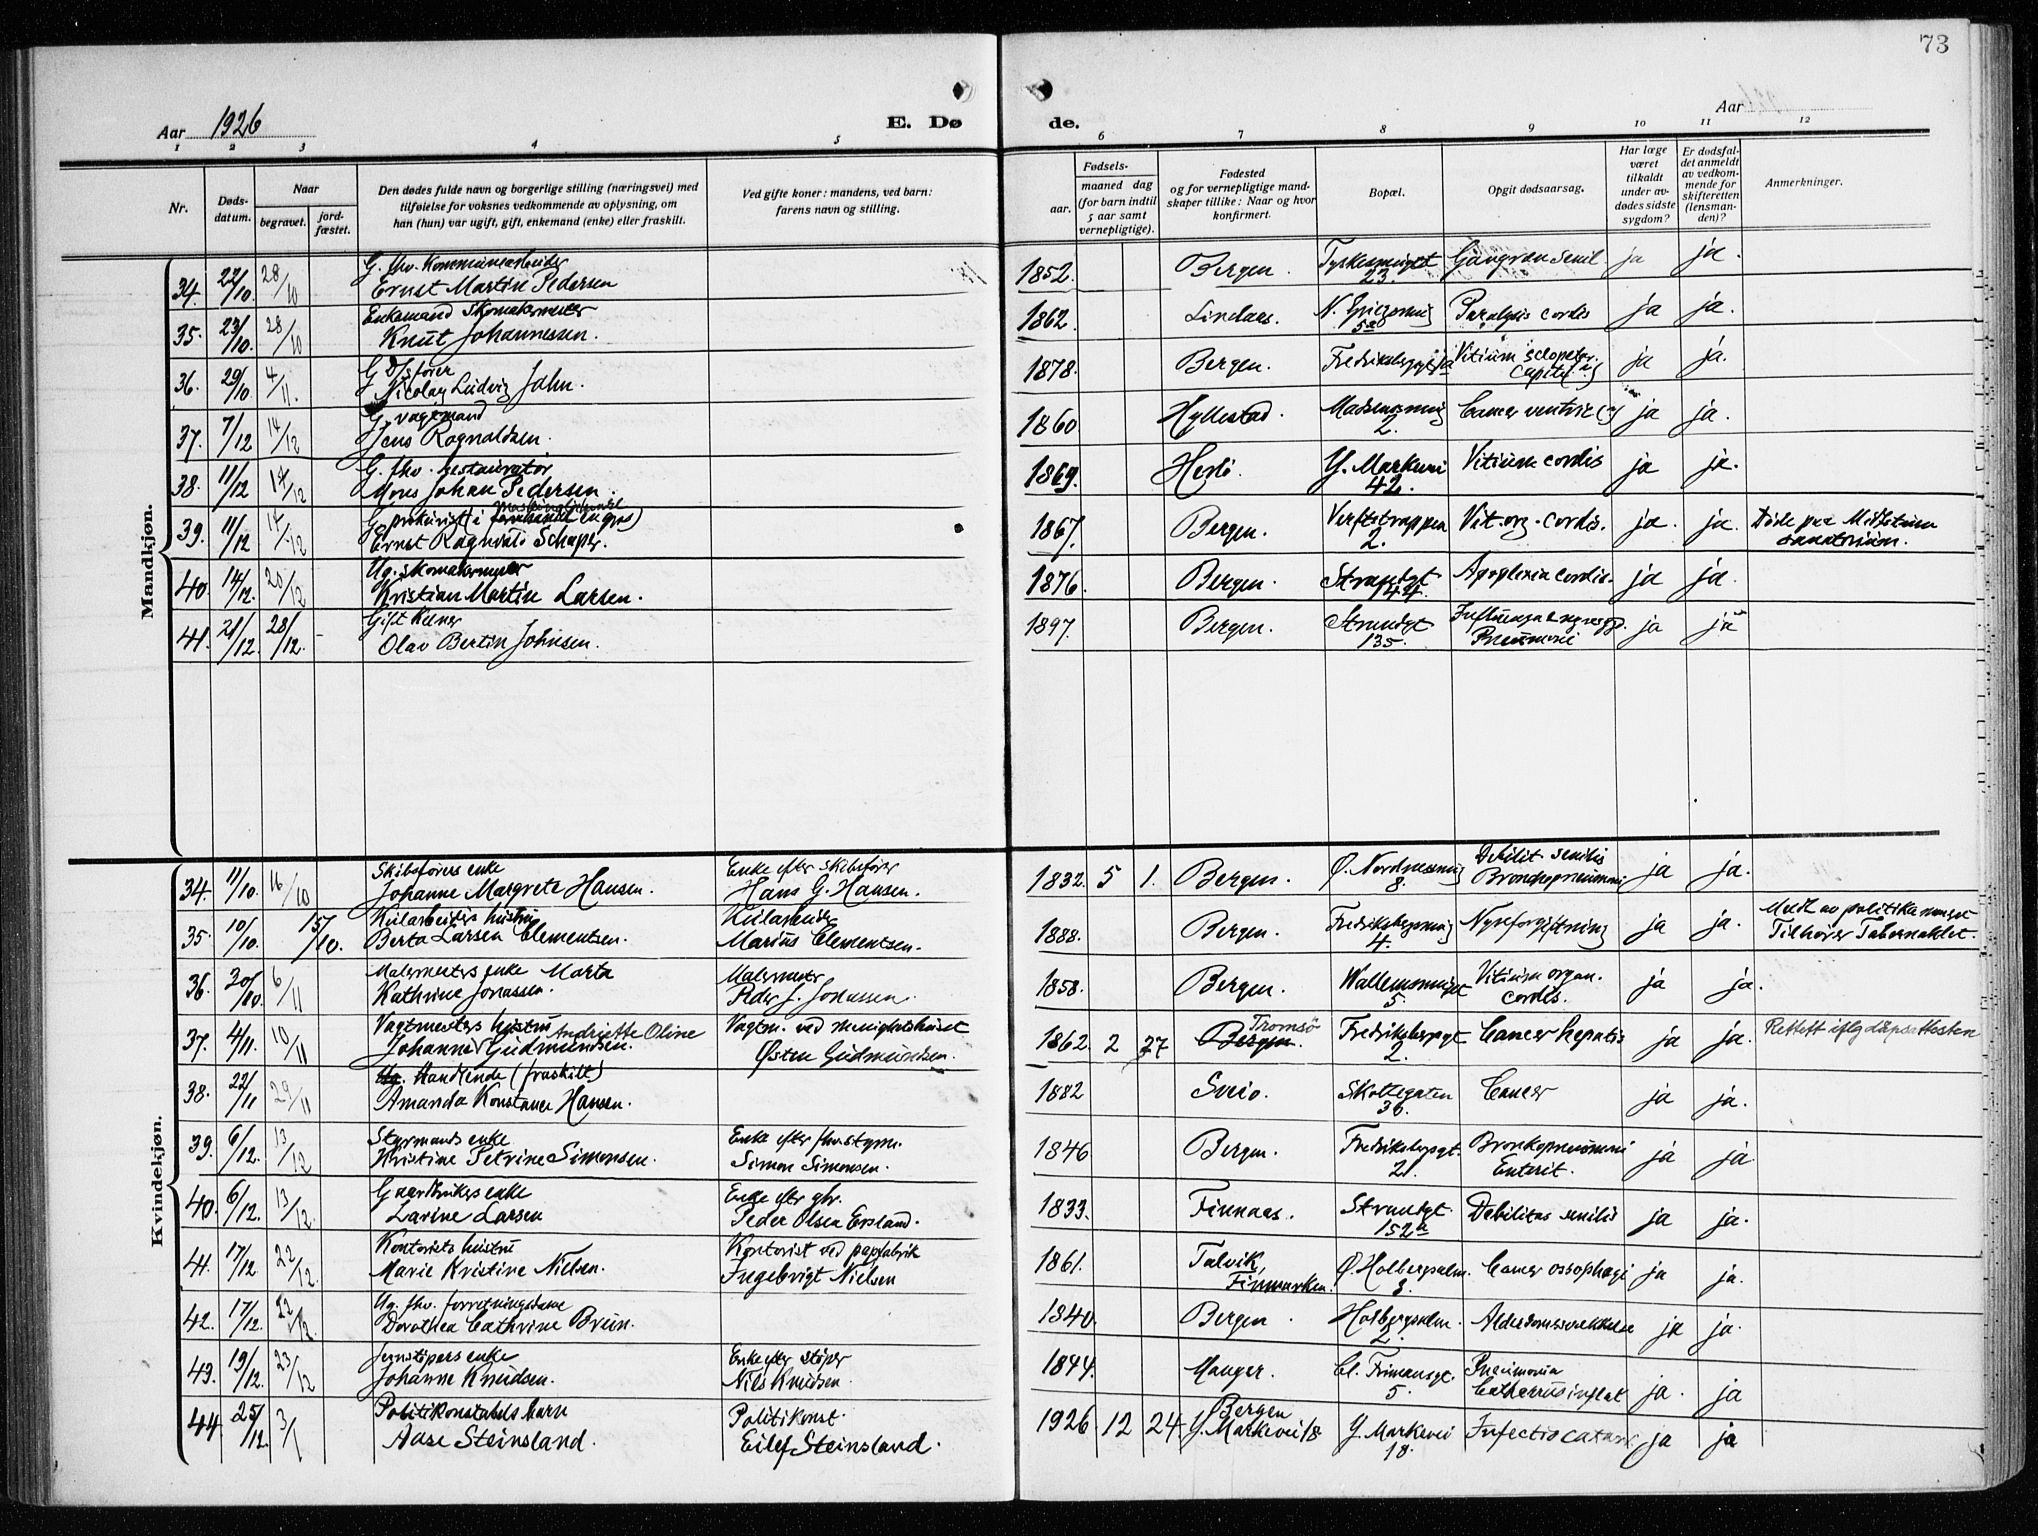 73
Aar 1926
E. Dø
de.
Aar
1 2 3 4 5
6 7 8 9 10 11 12
Nr.
Døds-
datum.
Naar
begravet.
jord-
fæstet.
Den dødes fulde navn og borgerlige stilling (næringsvei) med
tilføielse for voksnes vedkommende av oplysning, om
han (hun) var ugift, gift, enkemand (enke) eller fraskilt.
Ved gifte koner: mandens, ved barn:
farens navn og stilling.
Fødsels-
aar.
maaned dag
(for barn indtil
5 aar samt
vernepligtige).
Fødested
og for vernepligtige mand-
skaper tillike: Naar og hvor
konfirmert.
Bopæl.
Opgit dødsaarsag.
Har læge
været
tilkaldt
under av-
dødes sidste
sygdom?
Er dødsfal-
det anmeldt
av vedkom-
mende for
skifteretten
(lensman-
den)?
Anmerkninger.
Mandkjøn.
34. 22/10. 28/10 G. fhv. Kommunearbeider
Ernst Martin Pedersen
1852. Bergen. 23. Gangræn senil ja ja.
35. 23/10. 28/10 Enkemand Skomakermester
Knut Johannessen.
1862. Lindaas. 5a Paralysis cordis ja ja.
36. 29/10 4/11. G
Nicolay Ludvig Jahn.
1878. Bergen. Vitium sclopetar.
capitis ja ja.
37. 7/12 14/12 G. vagtmand
Jens Ragnaldsen.
1860. Hyllestad. 2. Cancer ventric ja ja.
38. 11/12 14/12 G. fhv. restauratør
Mons Johan Pedersen
1869. Herlø. Y. Markvei
42. Vitium cordis ja ja.
39. 11/12 14/12 G prokurist i
Ernst Ragnvald Schaper.
1867. Bergen. Verftstrappen
2. Vit. org. cordis. ja. ja. Døde paa
sanatorium.
40. 14/12. 20/12 Ug. skomakermester
Kristian Martin Larsen.
1876. Bergen. Strandgt
144. Apoplexia cordis. ja ja.
41. 21/12. 28/12. - Gift Kelner
Olav Bertin Johnsen.
1897. Bergen. Strandgt
135. Influenza
Pneumoni ja ja
Kvindekjøn.
34. 11/10. 16/10 Skibsførers enke
Johanne Margrete Hansen.
Enke efter skibsfører
Hans G. Hansen.
1832. 5 1. Bergen. Ø. Nordnæsvei
8. Debilit senilis
Bronchopneumoni ja ja.
35. 10/10. 15/10. Kularbeiders hustru
Berta Larsen Clementsen.
Kularbeider
Marius Clementsen.
1888. Bergen. 4. Nyreforgiftning ja ja. Meldt av politikammeret
Tilhører Tabernaklet.
36. 30/10. 6/11 Malermesters enke Marta
Kathrine Jonassen.
Malermester
Peder J. Jonassen.
1858. Bergen. 5. Vitium organ.
cordis. ja ja.
37. 4/11. 10/11 Vagtmesters hustru Andriette Oline
Johanne Gudmundsen.
Vagtm. ved menighetshuset
Østen Gudmundsen.
1862. 2 27 Tromsø
Bergen. Fredriksbergsgt
2. Cancer hepatis ja ja. Rettet iflg dåpsattesten
38. 22/11 29/11 Ug. Handlende (fraskilt)
Amanda Konstance Hansen.
1882 Sveio. Skottegaten
36. Cancer ja ja.
39. 6/12. 13/12 Styrmands enke
Kristine Petrine Simonsen.
Enke efter fhv. styrm.
Simon Simonsen.
1846 Bergen. Fredriksbergsgt.
21. Bronkopneumoni
Enterit. ja ja
40. 6/12. 13/12. Gaardbrukers enke
Larine Larsen
Enke efter gbr.
Peder Olsen Ersland.
1833. Finnaas. Strandgt.
152a Debilitas senilis ja ja.
41. 17/12 22/12. Kontorists hustru
Marie Kristine Nielsen.
Kontorist ved papfabrik
Ingebrigt Nielsen
1861. Talvik,
Finmarken. Ø. Holbergsalm.
3. Cancer ossophagi ja ja.
42. 17/12. 22/12 Ug. fhv. forretningsdame
Dorothea Cathrine Bruun.
1840. Bergen. Holbergsalm.
2. Alderdomssvækkelse ja ja.
43. 19/12. 23/12 Jernstøpers enke
Johanne Knudsen.
Enke efter støper
Nils Knudsen.
1844. Manger. 5. Pneumonia
Catharrus inflat ja. ja
44. 25/12. 3/1 Politikonstabels barn
Aase Steinsland.
Politikonst.
Eilef Steinsland.
1926 12 24. Bergen
Y. Markevei 18 Y. Markevei
18. Infectio catarr ja ja